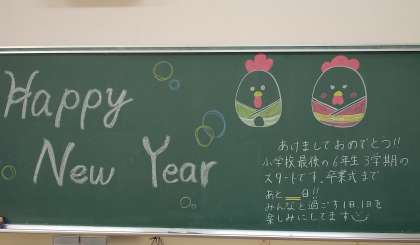 Happy
New Year
あけましておめでとう!!
小学校最後の6年生3学期の
スタートです。卒業式まで
あと__日!!
みんなと過ごす1日1日を
楽しみにしてます